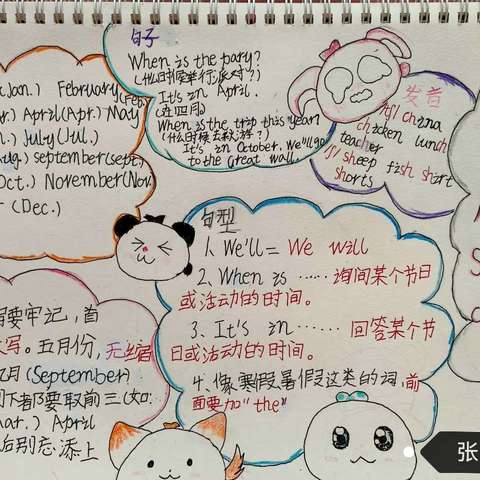 (Jan.) February(Feb.
April(Apr.) May
July(Jul.)
september(sept.
Oct.) November(Nov.
(Dec.)
句子
When is the pary?
(什么时候举行派对?)
It's in April.
(在四月)
When is the trip this year?
(什么时候去秋游?)
It's in October. We'll go
to the Great wall.
发音
/tʃ/ china
chicken lunch
teacher
/ʃ/ sheep fish shirt
shorts
句型
1. We'll = We will
2. When is …… 询问某个节日
或活动的时间。
3. It's in …… 回答某个节
日或活动的时间。
4. 像寒假暑假这类的词,前
面要加"the"
要牢记,首
写。五月份,无缩
九月(September)
都要取前三(如:
Mar.) April
后别忘添上
张